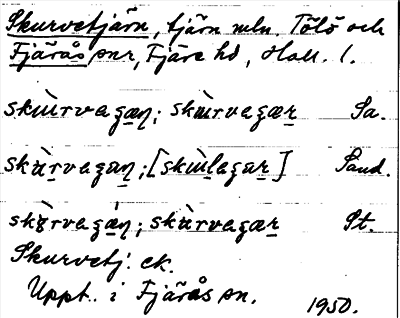 Skurvetjärn, tjärn mln. Tölö och
Fjärås snr, Fjäre hd, Hall. l.
skùrvagæn; skùrvagær Sa.
skùrvagan; [skùlagar] Sand.
skùrvagæn; skùrvagær St.
Skurvetj. ek.
Uppt. i Fjärås sn.
1950.